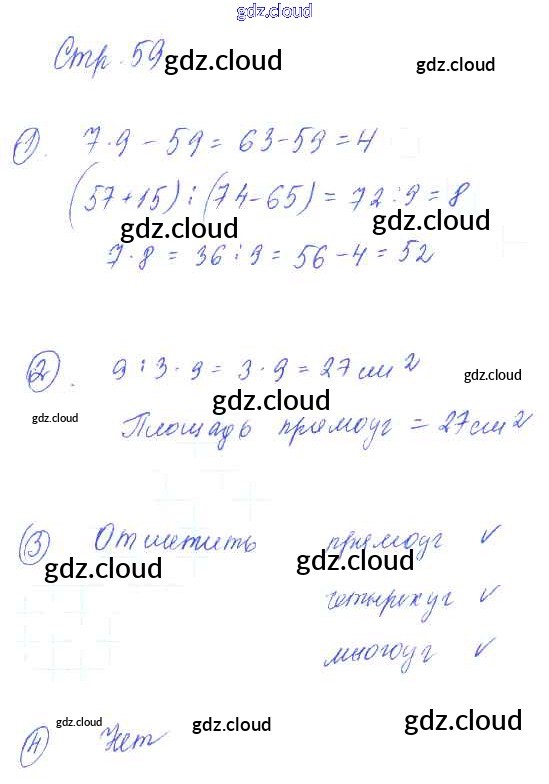 gdz.cloud
Стр. 59 gdz.cloud gdz.cloud
1. 7·9-59=63-59=4
(57+15):(74-65)=72:9=8
gdz.cloud gdz.cloud
7·8=36:9=56-4=52
2. 9:3·9=3·9=27см² gdz.cloud
gdz.cloud gdz.cloud
Площадь прямоуг=27см²
3 Отметить прямоуг ✓
gdz.cloud gdz.cloud
четырехуг ✓
многоуг ✓
4 gdz.cloud Нет gdz.cloud gdz.cloud